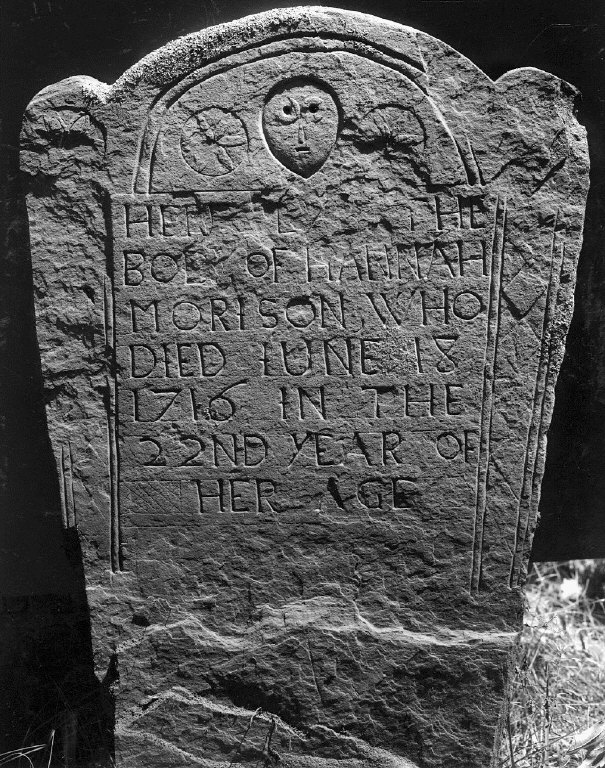 HERE THE
BODY OF HANNAH
MORISON WHO
DIED IUNE 18
1716 IN THE
22ND YEAR OF
HER AGE